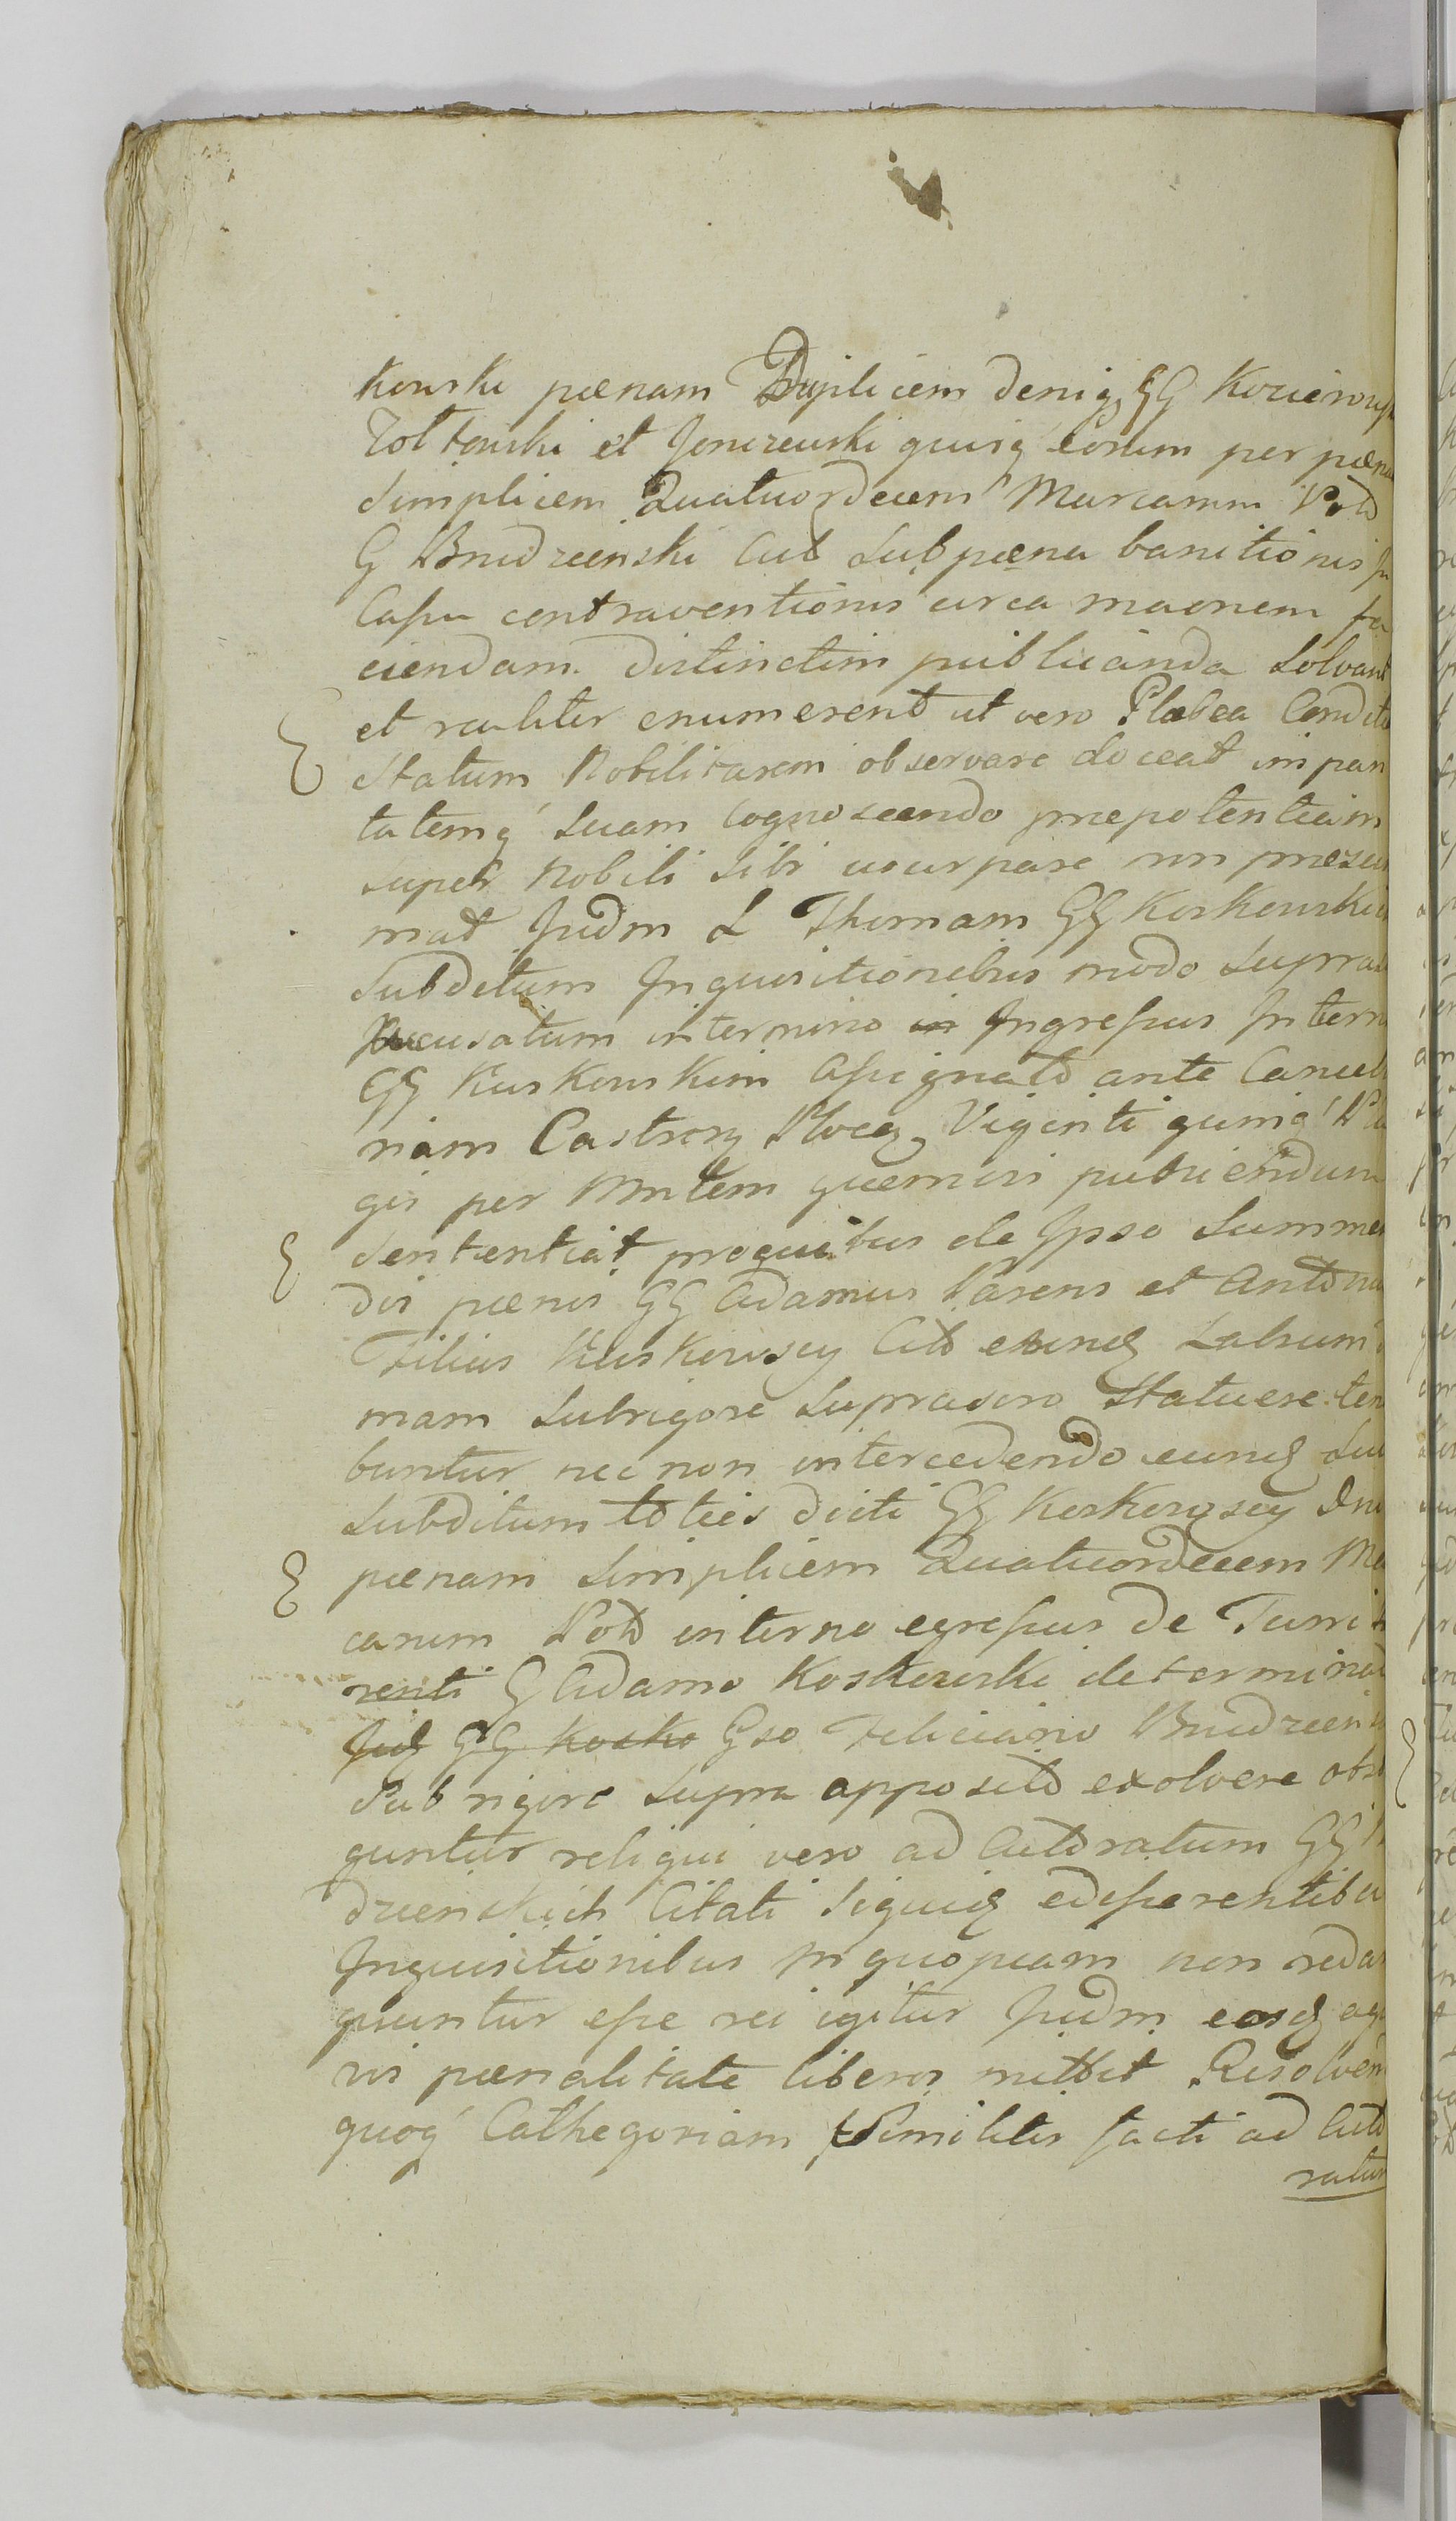 kowski pœnam Duplicem deniq GG Kozierows
Żołtowski et Jonczewski quisq eorum per pœna
Simplicem Quatuordecem Marcarum Polo
G Brudzeenski Auto Sub pœna banitionis in
Casu contraventionis circa maonem fa
ciendam distinctim publicanda Solvant
et realiter enumerent ut vero Plæbea Condito
Statum Nobilitarem observare doceat impari
tatemq Suam cognoscendo præpotentiam
super Nobili Sibi usurpare non præsu
mat Judm L Thomam GG Koskowskich
Subditum Inquisitionibus modo Supra
Accusatum in termino in Ingressus In turri
GG Koskowskim Assignato ante Cancella
riam Castrens Plocen Viginti quinq Pla
gis per Mntem quemvis puniendum
Sententiat pro quibus de Ipso Summen
dis pœnis GG Adamus Parens et Anton
Filius Koskowscy Citi eundq Laborum
mam Sub rigore Suprascro Statuere ten
buntur nec non intercedendo eundq Suu
Subditum toties dicti GG Koskowscy
pœnam Simplicem Quatuordecem Mar
carum Polo in termo egressus de Turri
renti G Adamo Koskowski determinat
Judq GG Kosko Gso Feliciano Brudzeensk
Sub rigore Supra apposito exolvere obst
guntur reliqui vero ad Actoratum GG
dzeenskich Citati Siquidq edisserentibus
Inquisitionibus in quopiam non redar
guuntur esse rei igitur Judm eosdq ag
vis pœnalitate liberos mittit Resolven
quoq Cathegoriam Similiter facti ad Acto
ratum